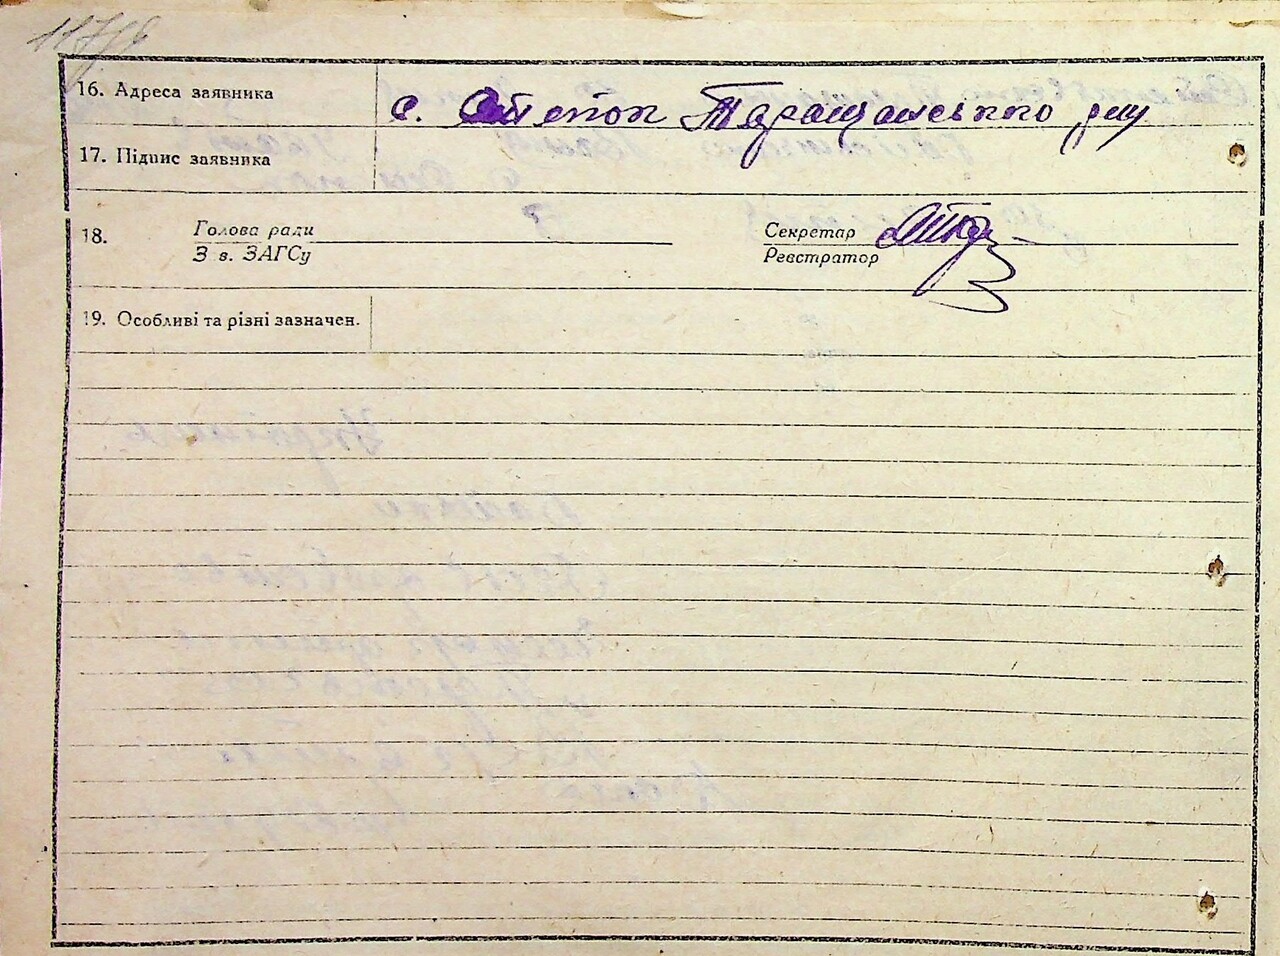 16. Адреса заявника с. Степок Таращанського р-ну
17. Підпис заявника
18. Голова ради Секретар
З в. ЗАГСу Реєстратор
19. Особливі та різні зазначен.